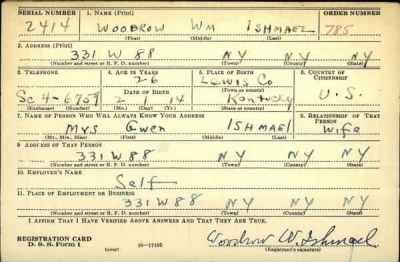 SERIAL NUMBER 1. NAME (Print) ORDER NUMBER
2414 WOODROW WM ISHMAEL 785
(First) (Middle) (Last)
2. ADDRESS (Print)
331 W 88 NY NY NY
(Number and street or R. F. D. number) (Town) (County) (State)
3. TELEPHONE 4. AGE IN YEARS 5. PLACE OF BIRTH 6. COUNTRY OF CITIZENSHIP
26 Lewis Co
DATE OF BIRTH (Town or county)
Sc 4-6759 2 14 Kentucky U.S.
(Exchange) (Number) (Mo.) (Day) (Yr.) (State or country)
7. NAME OF PERSON WHO WILL ALWAYS KNOW YOUR ADDRESS 8. RELATIONSHIP OF THAT PERSON
Mrs Gwen ISHMAEl Wife
(Mr., Mrs., Miss) (First) (Middle) (Last)
9. ADDRESS OF THAT PERSON
331 W 88 NY NY NY
(Number and street or R. F. D. number) (Town) (County) (State)
10. EMPLOYER'S NAME
Self
11. PLACE OF EMPLOYMENT OR BUSINESS
331 W 88 NY NY NY
(Number and street or R. F. D. number) (Town) (County) (State)
I AFFIRM THAT I HAVE VERIFIED ABOVE ANSWERS AND THAT THEY ARE TRUE.
REGISTRATION CARD
D. S. S. Form 1 (over) 16-17105 Woodrow W. Ishmael
(Registrant's signature)